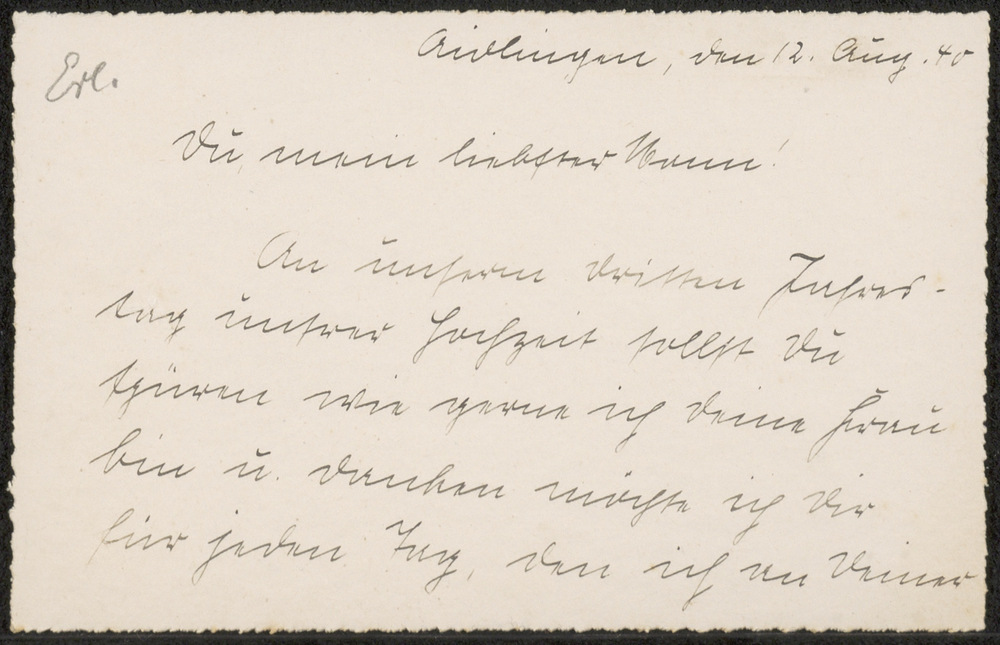 Aidlingen, den 12. Aug. 40
Erl.
Du, mein liebster Mann!
An unserm dritten Jahres-
tag unsrer Hochzeit sollst Du
spüren wie gerne ich deine Frau
bin u. danken möchte ich dir
für jeden Tag, den ich an deiner